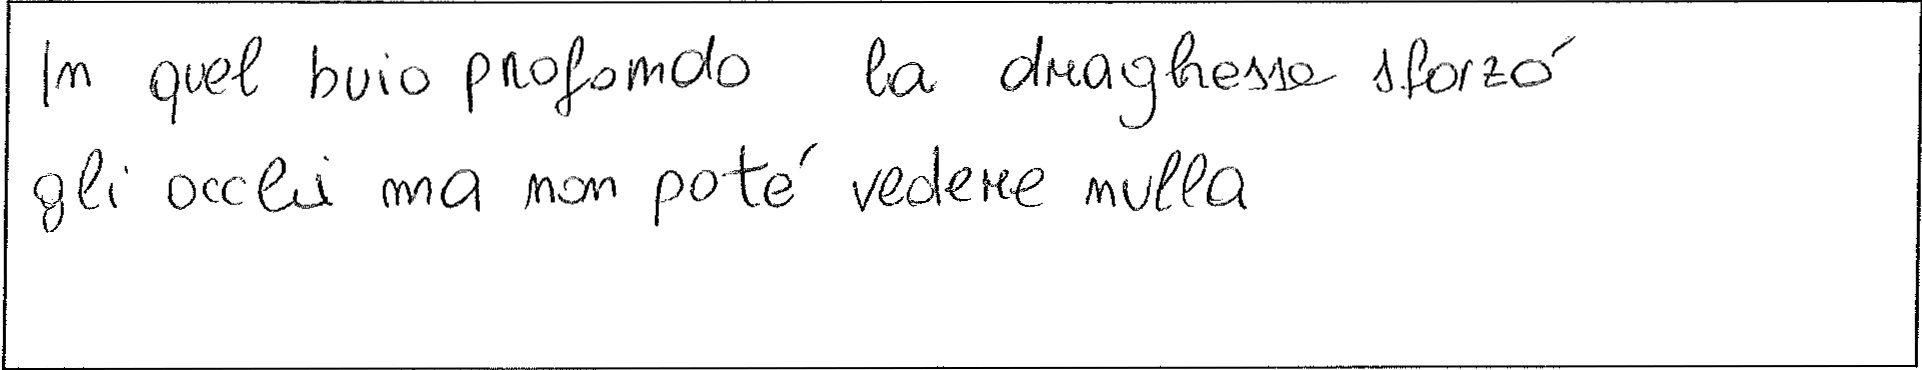 In quel buio profondo la draghesse sforzó
gli occhi ma non poté vedere nulla